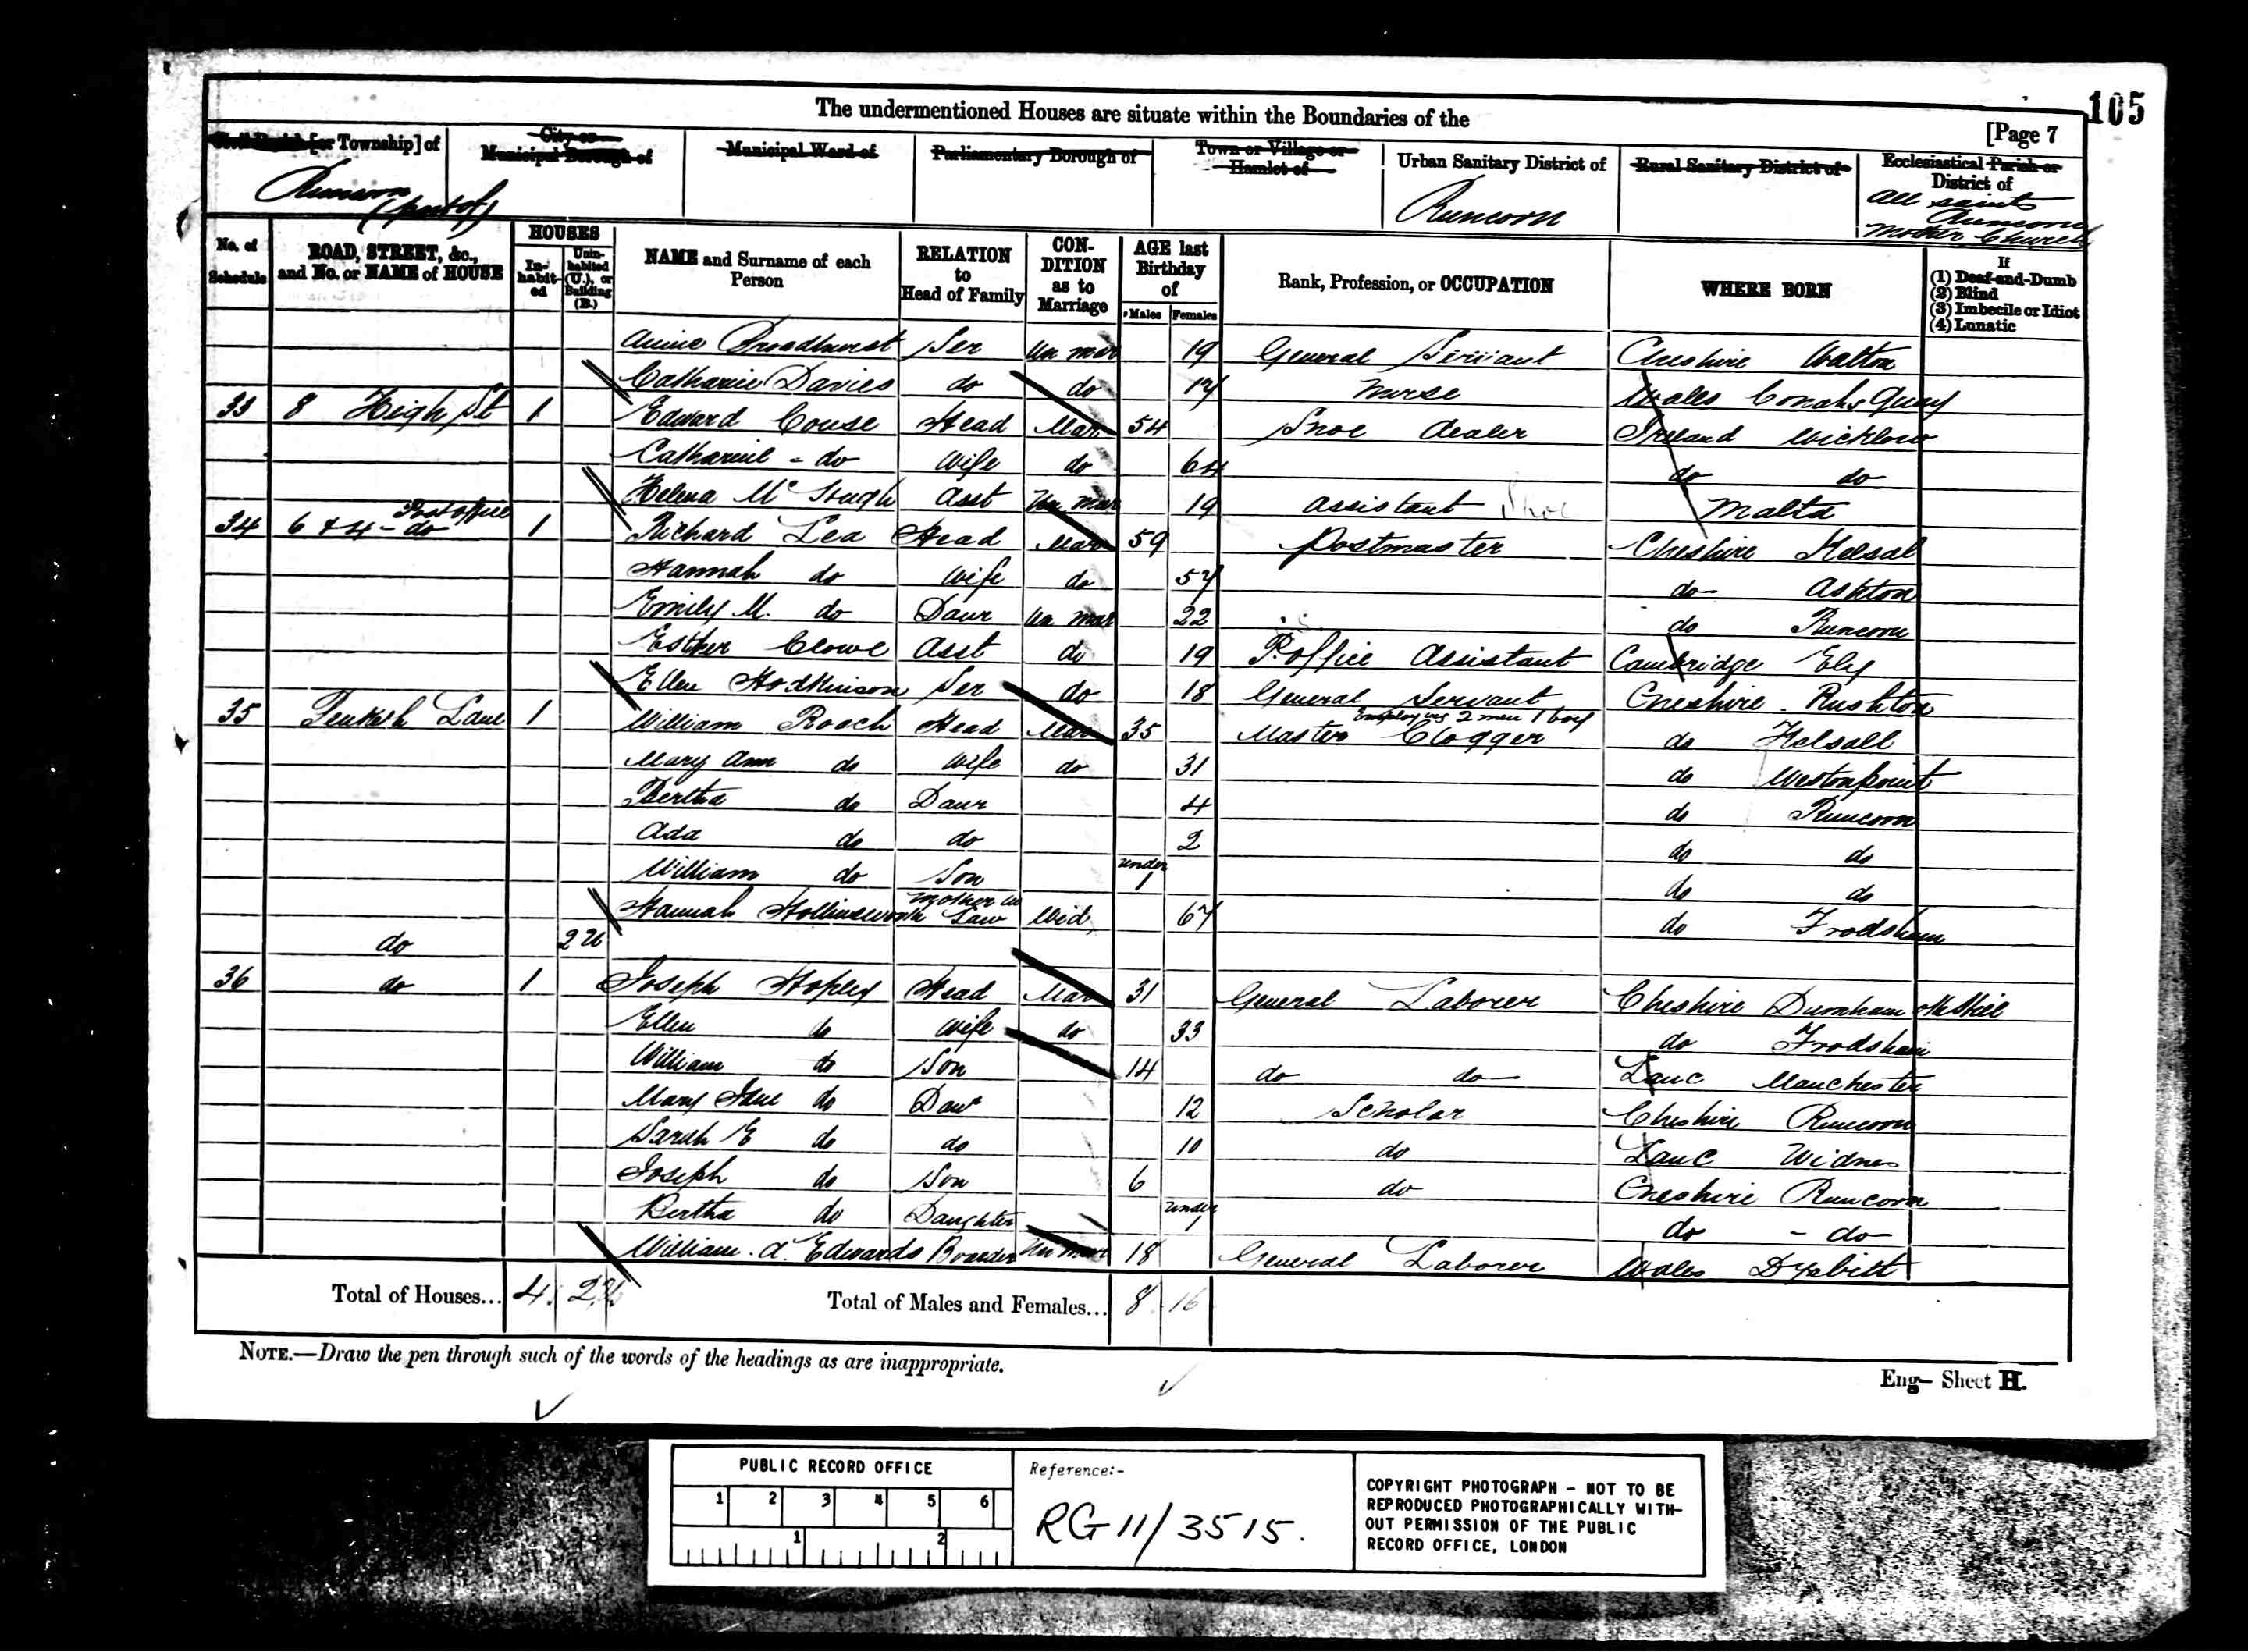 105
The undermentioned Houses are situate within the Boundaries of the
[Page 7
Civil Parish [or Township] of
City or Municipal Borough of
Municipal Ward of
Parliamentary Borough of
Town or Village or Hamlet of
Urban Sanitary District of
Rural Sanitary District of
Ecclesiastical Parish or District of
Runcorn (part of)
Runcorn
All Saints Runcorn Mother Church
No. of Schedule
ROAD, STREET, &c., and No. or NAME of HOUSE
HOUSES
In-habit-ed
Unin-habited (U.), or Building (B.)
NAME and Surname of each Person
RELATION to Head of Family
CON-DITION as to Marriage
AGE last Birthday of
Males
Females
Rank, Profession, or OCCUPATION
WHERE BORN
If
(1) Deaf-and-Dumb
(2) Blind
(3) Imbecile or Idiot
(4) Lunatic
Annie Broadhurst Ser Un mar 19 General Servant Cheshire Walton
Catharine Davies do do 17 Nurse Wales Conahs Quay
33 8 High St 1 Edward Couse Head Mar 54 Shoe dealer Ireland Wicklow
Catharine - do Wife do 64 do do
Helena Mc Hugh Asst Un mar 19 Assistant Shoe Malta
34 6 & 4 - do Post office 1 Richard Lea Head Mar 59 Postmaster Cheshire Kelsal
Hannah do Wife do 57 do Ashton
Emily M. do Daur Un mar 22 do Runcorn
Esther Clowe Asst do 19 P. office Assistant Cambridge Ely
Ellen Hodkinson Ser do 18 General Servant Cheshire Rushton
35 Lane 1 William Roach Head Mar 35 Master Clogger Employing 2 men 1 boy do Kelsall
Mary Ann do Wife do 31 do Westonpoint
Bertha do Daur 4 do Runcorn
Ada do do 2 do do
William do Son under 1 do do
Hannah Hollinsworth Mother in Law Wid 67 do Frodsham
do 2 U
36 do 1 Joseph Hopley Head Mar 31 General Laborer Cheshire Dunham
Ellen do Wife do 33 do Frodsham
William do Son 14 do do Lanc Manchester
Mary Jane do Daur 12 Scholar Cheshire Runcorn
Sarah E do do 10 do Lanc Widnes
Joseph do Son 6 do Cheshire Runcorn
Bertha do Daughter under 1 do - do
William. A. Edwards Boarder Un mar 18 General Laborer Wales
Total of Houses... 4. 2U
Total of Males and Females... 8 16
NOTE.—Draw the pen through such of the words of the headings as are inappropriate.
Eng— Sheet H.
PUBLIC RECORD OFFICE
1 2 3 4 5 6
1 2
Reference:-
RG 11/3515.
COPYRIGHT PHOTOGRAPH - NOT TO BE
REPRODUCED PHOTOGRAPHICALLY WITH-
OUT PERMISSION OF THE PUBLIC
RECORD OFFICE, LONDON